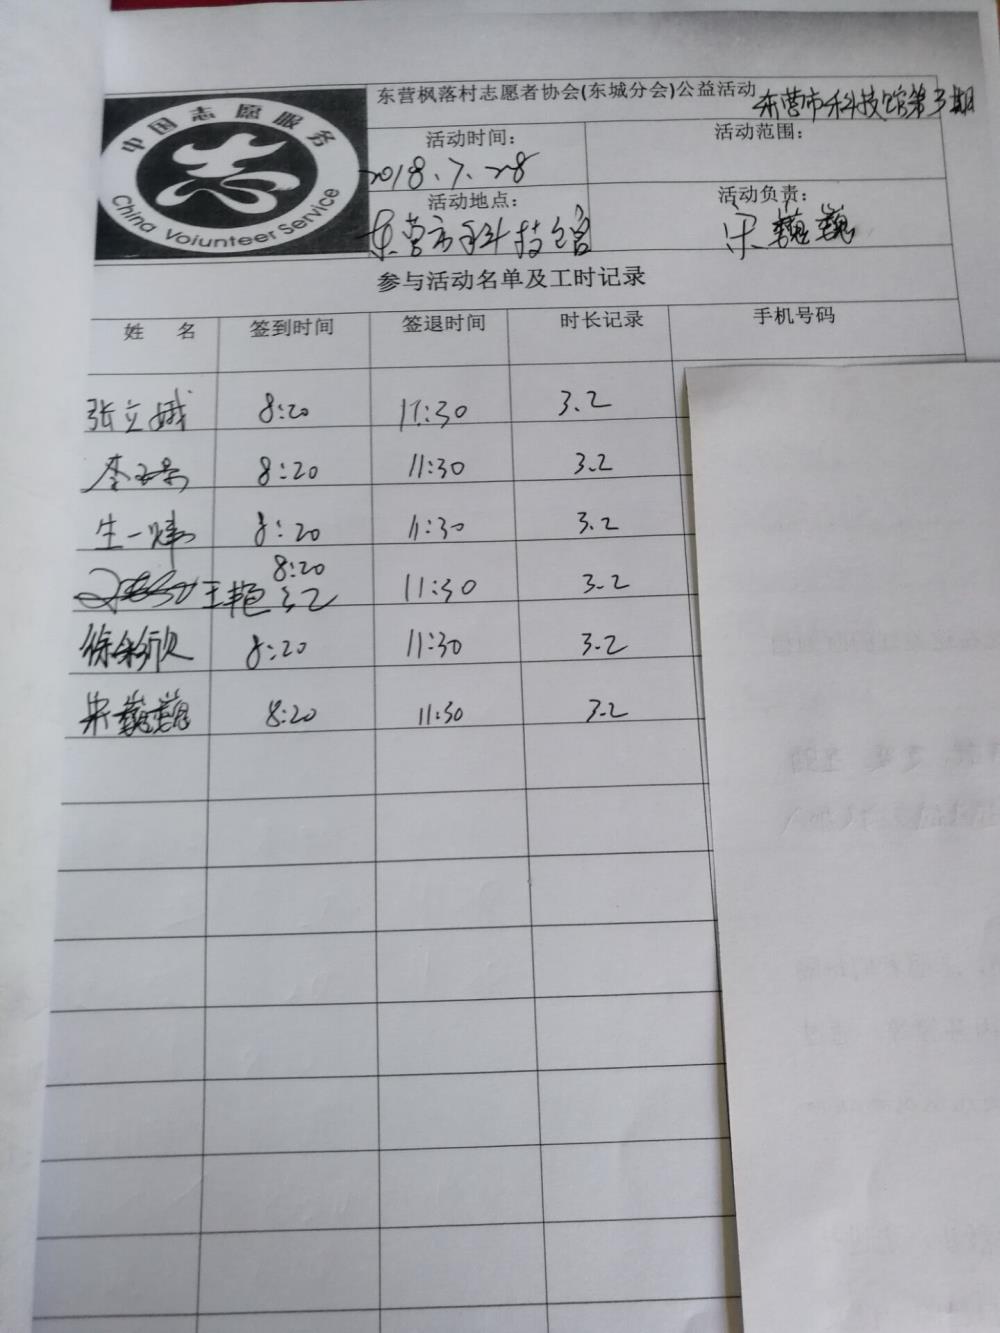 东营枫落村志愿者协会(东城分会)公益活动 东营市科技馆第3期
中国志愿服务
China Volunteer Service
活动时间: 活动范围:
2018.7.28
活动地点: 活动负责:
东营市科技馆 宋巍巍
参与活动名单及工时记录
姓 名 签到时间 签退时间 时长记录 手机号码
张立娥 8:20 11:30 3.2
李 8:20 11:30 3.2
生一炜 8:20 11:30 3.2
王艳 8:20 11:30 3.2
徐彩欣 8:20 11:30 3.2
宋巍巍 8:20 11:30 3.2